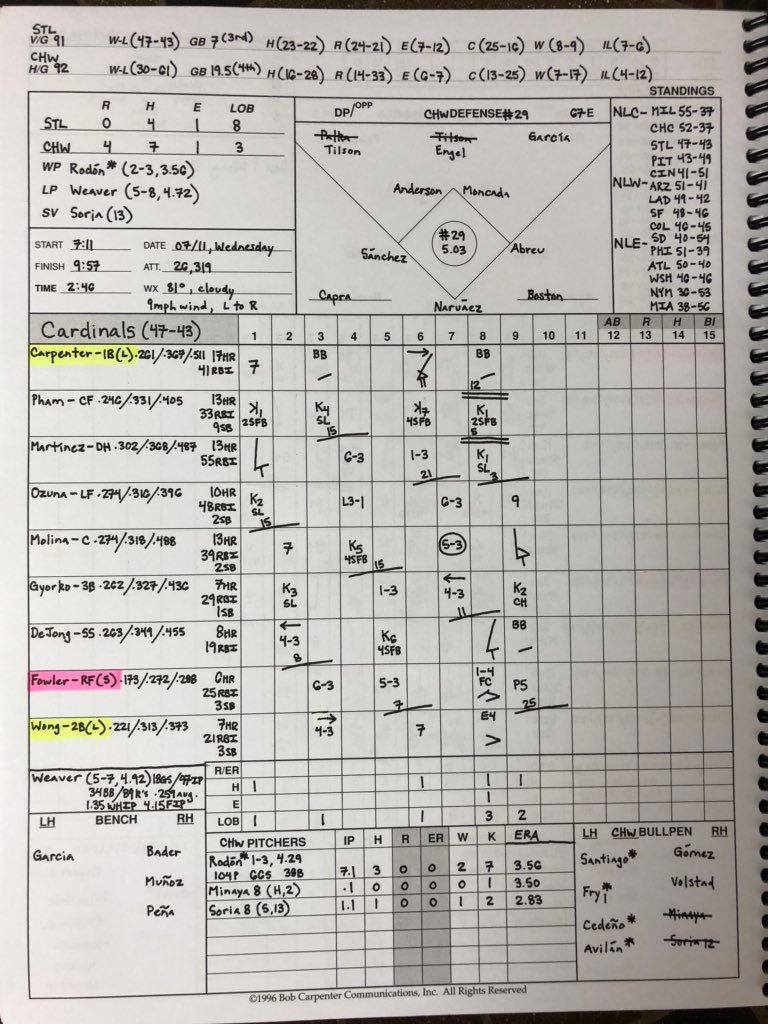 STL
V/G 91 W-L(47-43) GB 7(3rd) H(23-22) R(24-21) E(7-12) C(25-16) W(8-9) IL(7-6)
CHW
H/G 92 W-L(30-61) GB 19.5(4th) H(16-28) R(14-33) E(6-7) C(13-25) W(7-17) IL(4-12)
STANDINGS
R H E LOB
STL 0 4 1 8
CHW 4 7 1 3
WP Rodón* (2-3,3.56)
LP Weaver (5-8,4.72)
SV Soria (13)
START 7:11 DATE 07/11, Wednesday
FINISH 9:57 ATT. 26,319
TIME 2:46 WX 81°, cloudy
9mph wind, L to R
DP/OPP CHW DEFENSE #29 67-E
Palka Tilson García
Tilson Engel
Anderson Moncada
#29
5.03
Sánchez Abreu
Capra Boston
Narváez
NLC- MIL 55-37
CHC 52-37
STL 47-43
PIT 43-49
CIN 41-51
NLW- ARZ 51-41
LAD 49-42
SF 48-46
COL 46-45
SD 40-54
NLE- PHI 51-39
ATL 50-40
WSH 46-46
NYM 36-53
MIA 38-56
Cardinals (47-43) 1 2 3 4 5 6 7 8 9 10 11 AB 12 R 13 H 14 BI 15
Carpenter-1B(L) .261/.367/.511 17HR 7 BB BB
41RBI 12
Pham-CF .246/.331/.405 13HR K1 K4 K7 K1
33RBI 2SFB SL 4SFB 2SFB
9SB 15 5
Martínez-DH .302/.368/.487 13HR 6-3 1-3 K1
55RBI 21 SL 3
Ozuna-LF .274/.316/.396 10HR K2 L3-1 6-3 9
48RBI SL
2SB 15
Molina-C .274/.318/.488 13HR 7 K5 5-3
39RBI 4SFB
2SB 15
Gyorko-3B .262/.327/.436 7HR K3 1-3 4-3 K2
29RBI SL CH
1SB 11
DeJong-SS .263/.349/.455 8HR 4-3 K6 BB
19RBI 4SFB
8
Fowler-RF(S) .173/.272/.288 6HR 6-3 5-3 1-4 P5
25RBI FC
3SB 7 25
Wong-2B(L) .221/.313/.373 7HR 4-3 7 E4
21RBI
3SB
Weaver (5-7, 4.92) 18GS/97IP R/ER
34BB/89K's .259avg. H 1 1 1 1
1.35 WHIP 4.15FIP E 1
LOB 1 1 1 3 2
LH BENCH RH
Garcia Bader
Muñoz
Peña
CHW PITCHERS IP H R ER W K ERA
Rodón* 1-3, 4.29
104P 66S 38B 7.1 3 0 0 2 7 3.56
Minaya 8 (H,2) .1 0 0 0 0 1 3.50
Soria 8 (S,13) 1.1 1 0 0 1 2 2.83
LH CHW BULLPEN RH
Santiago* Gómez
Fry* Volstad
Cedeño* Minaya
Avilán* Soria 12
©1996 Bob Carpenter Communications, Inc. All Rights Reserved